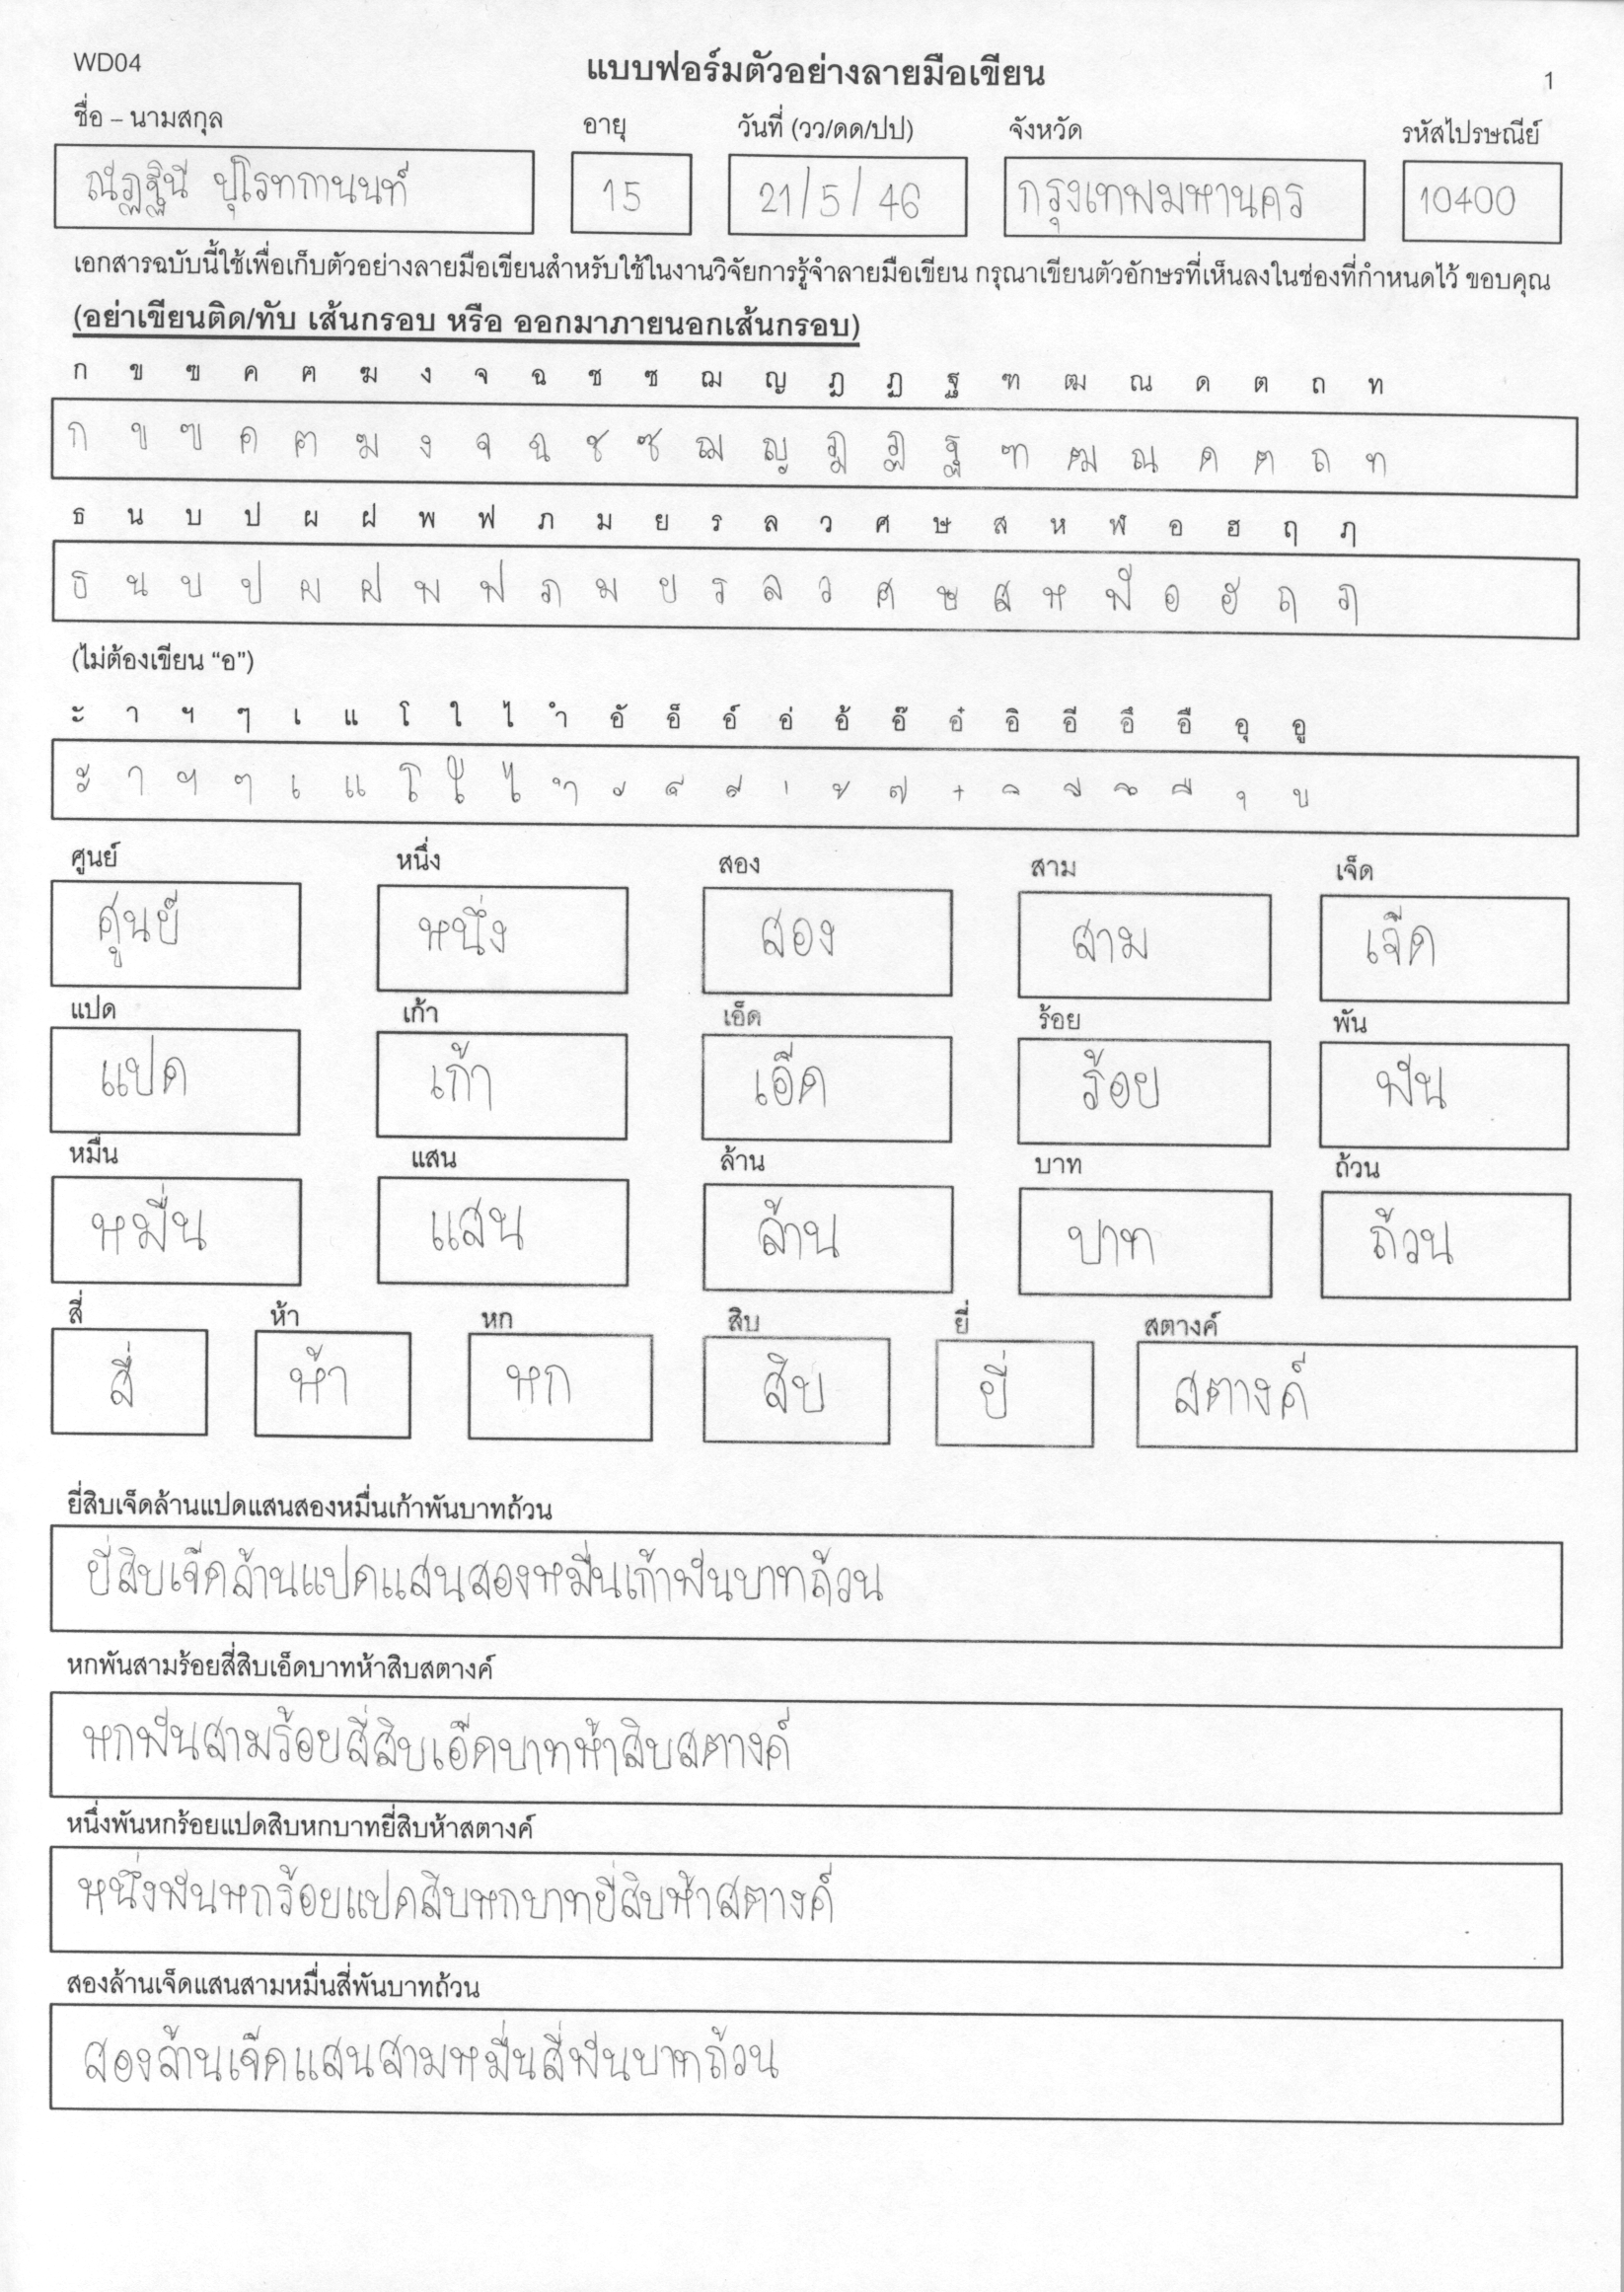 WD04
แบบฟอร์มตัวอย่างลายมือเขียน
1
ชื่อ – นามสกุล อายุ วันที่ (วว/ดด/ปป) จังหวัด รหัสไปรษณีย์
ณัฏฐินี ปุโรทกานนท์ 15 21/5/46 กรุงเทพมหานคร 10400
เอกสารฉบับนี้ใช้เพื่อเก็บตัวอย่างลายมือเขียนสำหรับใช้ในงานวิจัยการรู้จำลายมือเขียน กรุณาเขียนตัวอักษรที่เห็นลงในช่องที่กำหนดไว้ ขอบคุณ
(อย่าเขียนติด/ทับ เส้นกรอบ หรือ ออกมาภายนอกเส้นกรอบ)
ก ข ฃ ค ฅ ฆ ง จ ฉ ช ซ ฌ ญ ฎ ฏ ฐ ฑ ฒ ณ ด ต ถ ท
ก ข ฃ ค ฅ ฆ ง จ ฉ ช ซ ฌ ญ ฎ ฏ ฐ ฑ ฒ ณ ด ต ถ ท
ธ น บ ป ผ ฝ พ ฟ ภ ม ย ร ล ว ศ ษ ส ห ฬ อ ฮ ฤ ฦ
ธ น บ ป ผ ฝ พ ฟ ภ ม ย ร ล ว ศ ษ ส ห ฬ อ ฮ ฤ ฦ
(ไม่ต้องเขียน “อ”)
ะ า ฯ ๆ เ แ โ ใ ไ ำ อั อ็ อ์ อ่ อ้ อ๊ อ๋ อิ อี อึ อื อุ อู
ะ า ฯ ๆ เ แ โ ใ ไ ำ ั ็ ์ ่ ้ ๊ ๋ ิ ี ึ ื ุ ู
ศูนย์ หนึ่ง สอง สาม เจ็ด
ศูนย์ หนึ่ง สอง สาม เจ็ด
แปด เก้า เอ็ด ร้อย พัน
แปด เก้า เอ็ด ร้อย พัน
หมื่น แสน ล้าน บาท ถ้วน
หมื่น แสน ล้าน บาท ถ้วน
สี่ ห้า หก สิบ ยี่ สตางค์
สี่ ห้า หก สิบ ยี่ สตางค์
ยี่สิบเจ็ดล้านแปดแสนสองหมื่นเก้าพันบาทถ้วน
ยี่สิบเจ็ดล้านแปดแสนสองหมื่นเก้าพันบาทถ้วน
หกพันสามร้อยสี่สิบเอ็ดบาทห้าสิบสตางค์
หกพันสามร้อยสี่สิบเอ็ดบาทห้าสิบสตางค์
หนึ่งพันหกร้อยแปดสิบหกบาทยี่สิบห้าสตางค์
หนึ่งพันหกร้อยแปดสิบหกบาทยี่สิบห้าสตางค์
สองล้านเจ็ดแสนสามหมื่นสี่พันบาทถ้วน
สองล้านเจ็ดแสนสามหมื่นสี่พันบาทถ้วน